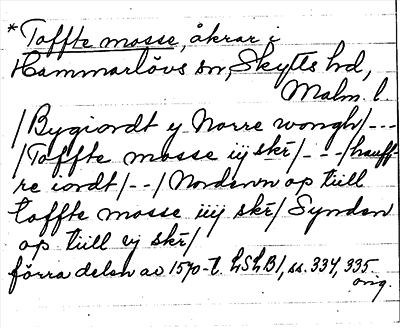 *Toffte mosse, åkrar i
Hammarlövs sn, Skytts hd,
Malm. l.
/Bygiordt y Norre wongh/---
/Toffte mosse iij skr/---/hauff-
re iordt/--/Nordenn op till
toffte mosse iiij skr/ Synden
op till vj skr/
förra delen av 1570-t. LSLB1, ss. 334, 335
orig.